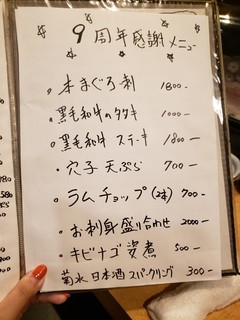 9周年感謝メニュー
・本まぐろ刺 1800-
・黒毛和牛のタタキ 1000-
・黒毛和牛ステーキ 1800-
・穴子天ぷら 700-
・ラムチョップ(2本) 700-
・お刺身盛り合わせ 2000-
・キビナゴ姿煮 500-
菊水 日本酒スパークリング 300-